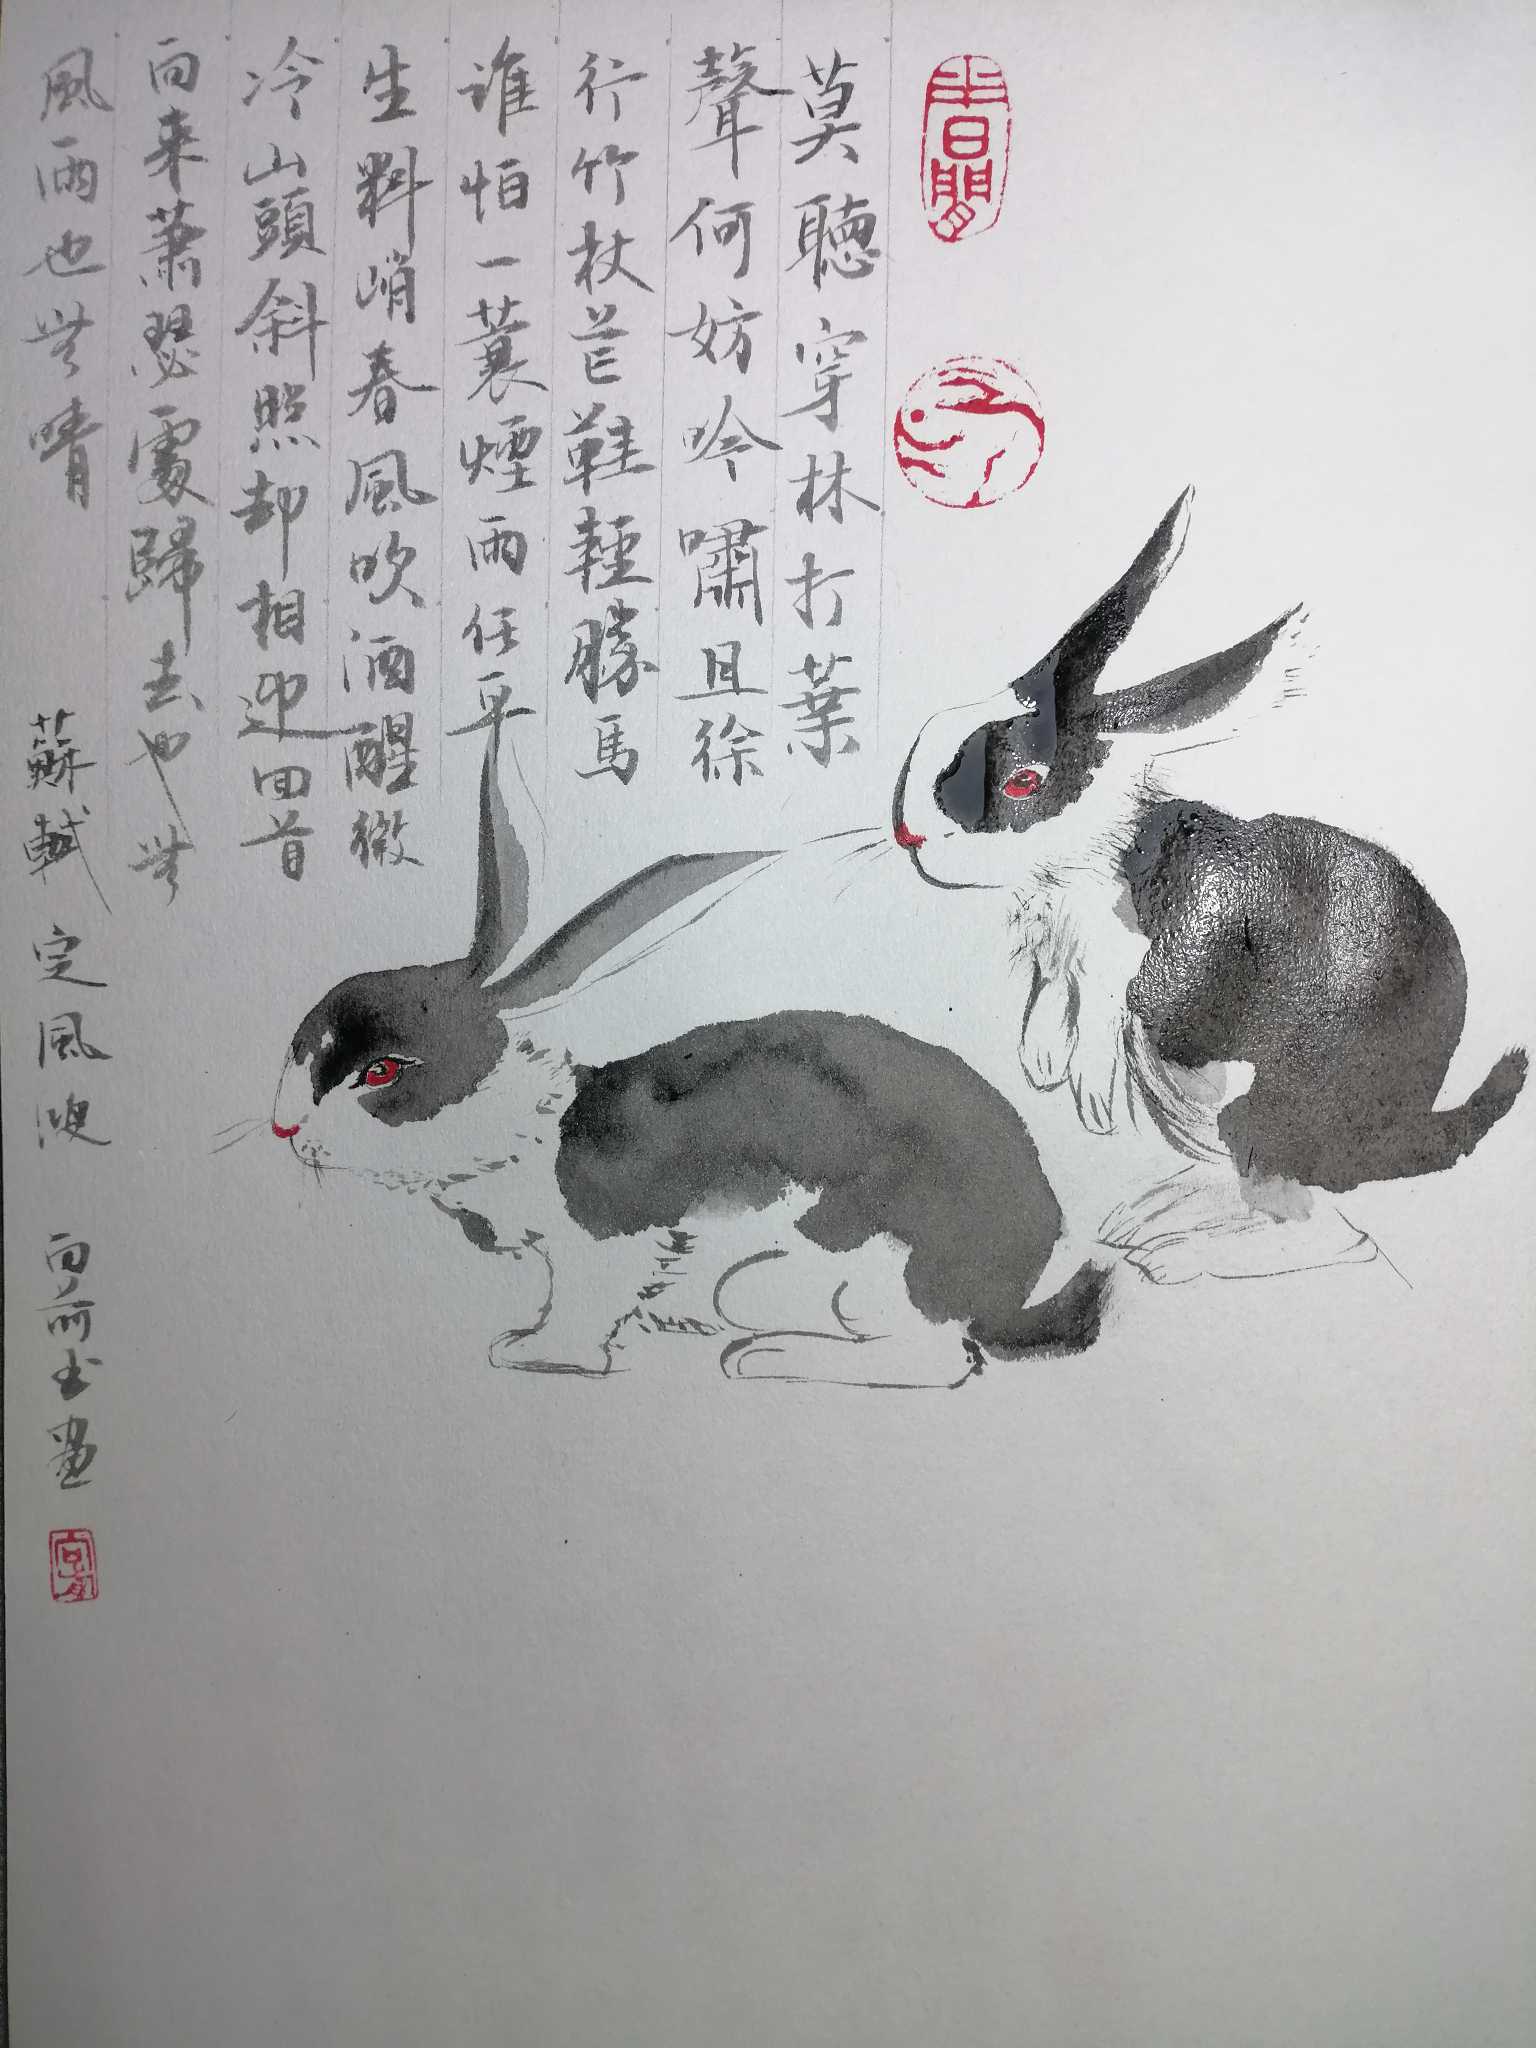 半日閒
莫聽穿林打葉
聲何妨吟嘯且徐
行竹杖芒鞋輕勝馬
谁怕一蓑煙雨任平
生料峭春風吹酒醒微
冷山頭斜照却相迎回首
向来蕭瑟處歸去也無
風雨也無晴
蘇軾 定風波 向前书畫